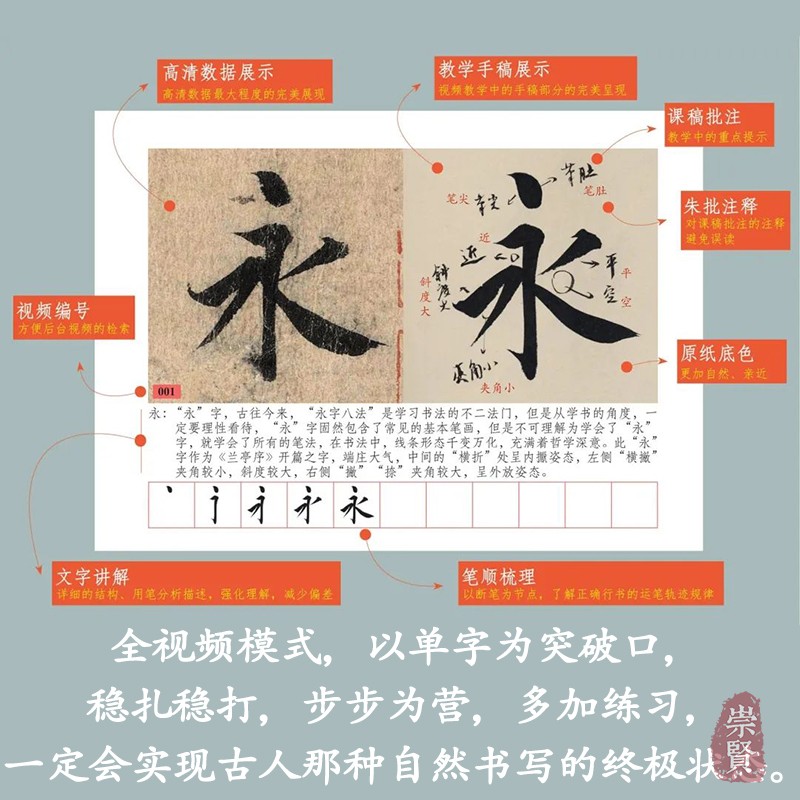 高清数据展示
高清数据最大程度的完美展现
教学手稿展示
视频教学中的手稿部分的完美呈现
课稿批注
教学中的重点提示
朱批注释
对课稿批注的注释
避免误读
视频编号
方便后台视频的检索
原纸底色
更加自然、亲近
永
001
永
笔尖
笔尖
笔肚
笔肚
近
近
斜度大
斜度大
平
平
空
空
夹角小
夹角小
永：“永”字，古往今来，“永字八法”是学习书法的不二法门，但是从学书的角度，一
定要理性看待，“永”字固然包含了常见的基本笔画，但是不可理解为学会了“永”
字，就学会了所有的笔法，在书法中，线条形态千变万化，充满着哲学深意。此“永”
字作为《兰亭序》开篇之字，端庄大气，中间的“横折”处呈内擫姿态，左侧“横撇”
夹角较小，斜度较大，右侧“撇”“捺”夹角较大，呈外放姿态。
永
文字讲解
详细的结构、用笔分析描述，强化理解，减少偏差
笔顺梳理
以断笔为节点，了解正确行书的运笔轨迹规律
全视频模式，以单字为突破口，
稳扎稳打，步步为营，多加练习，
一定会实现古人那种自然书写的终极状。
崇賢